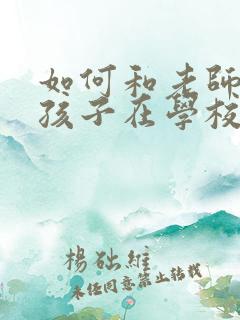 如何和老師
孩子在學校
楊础維
未經同意禁止轉載